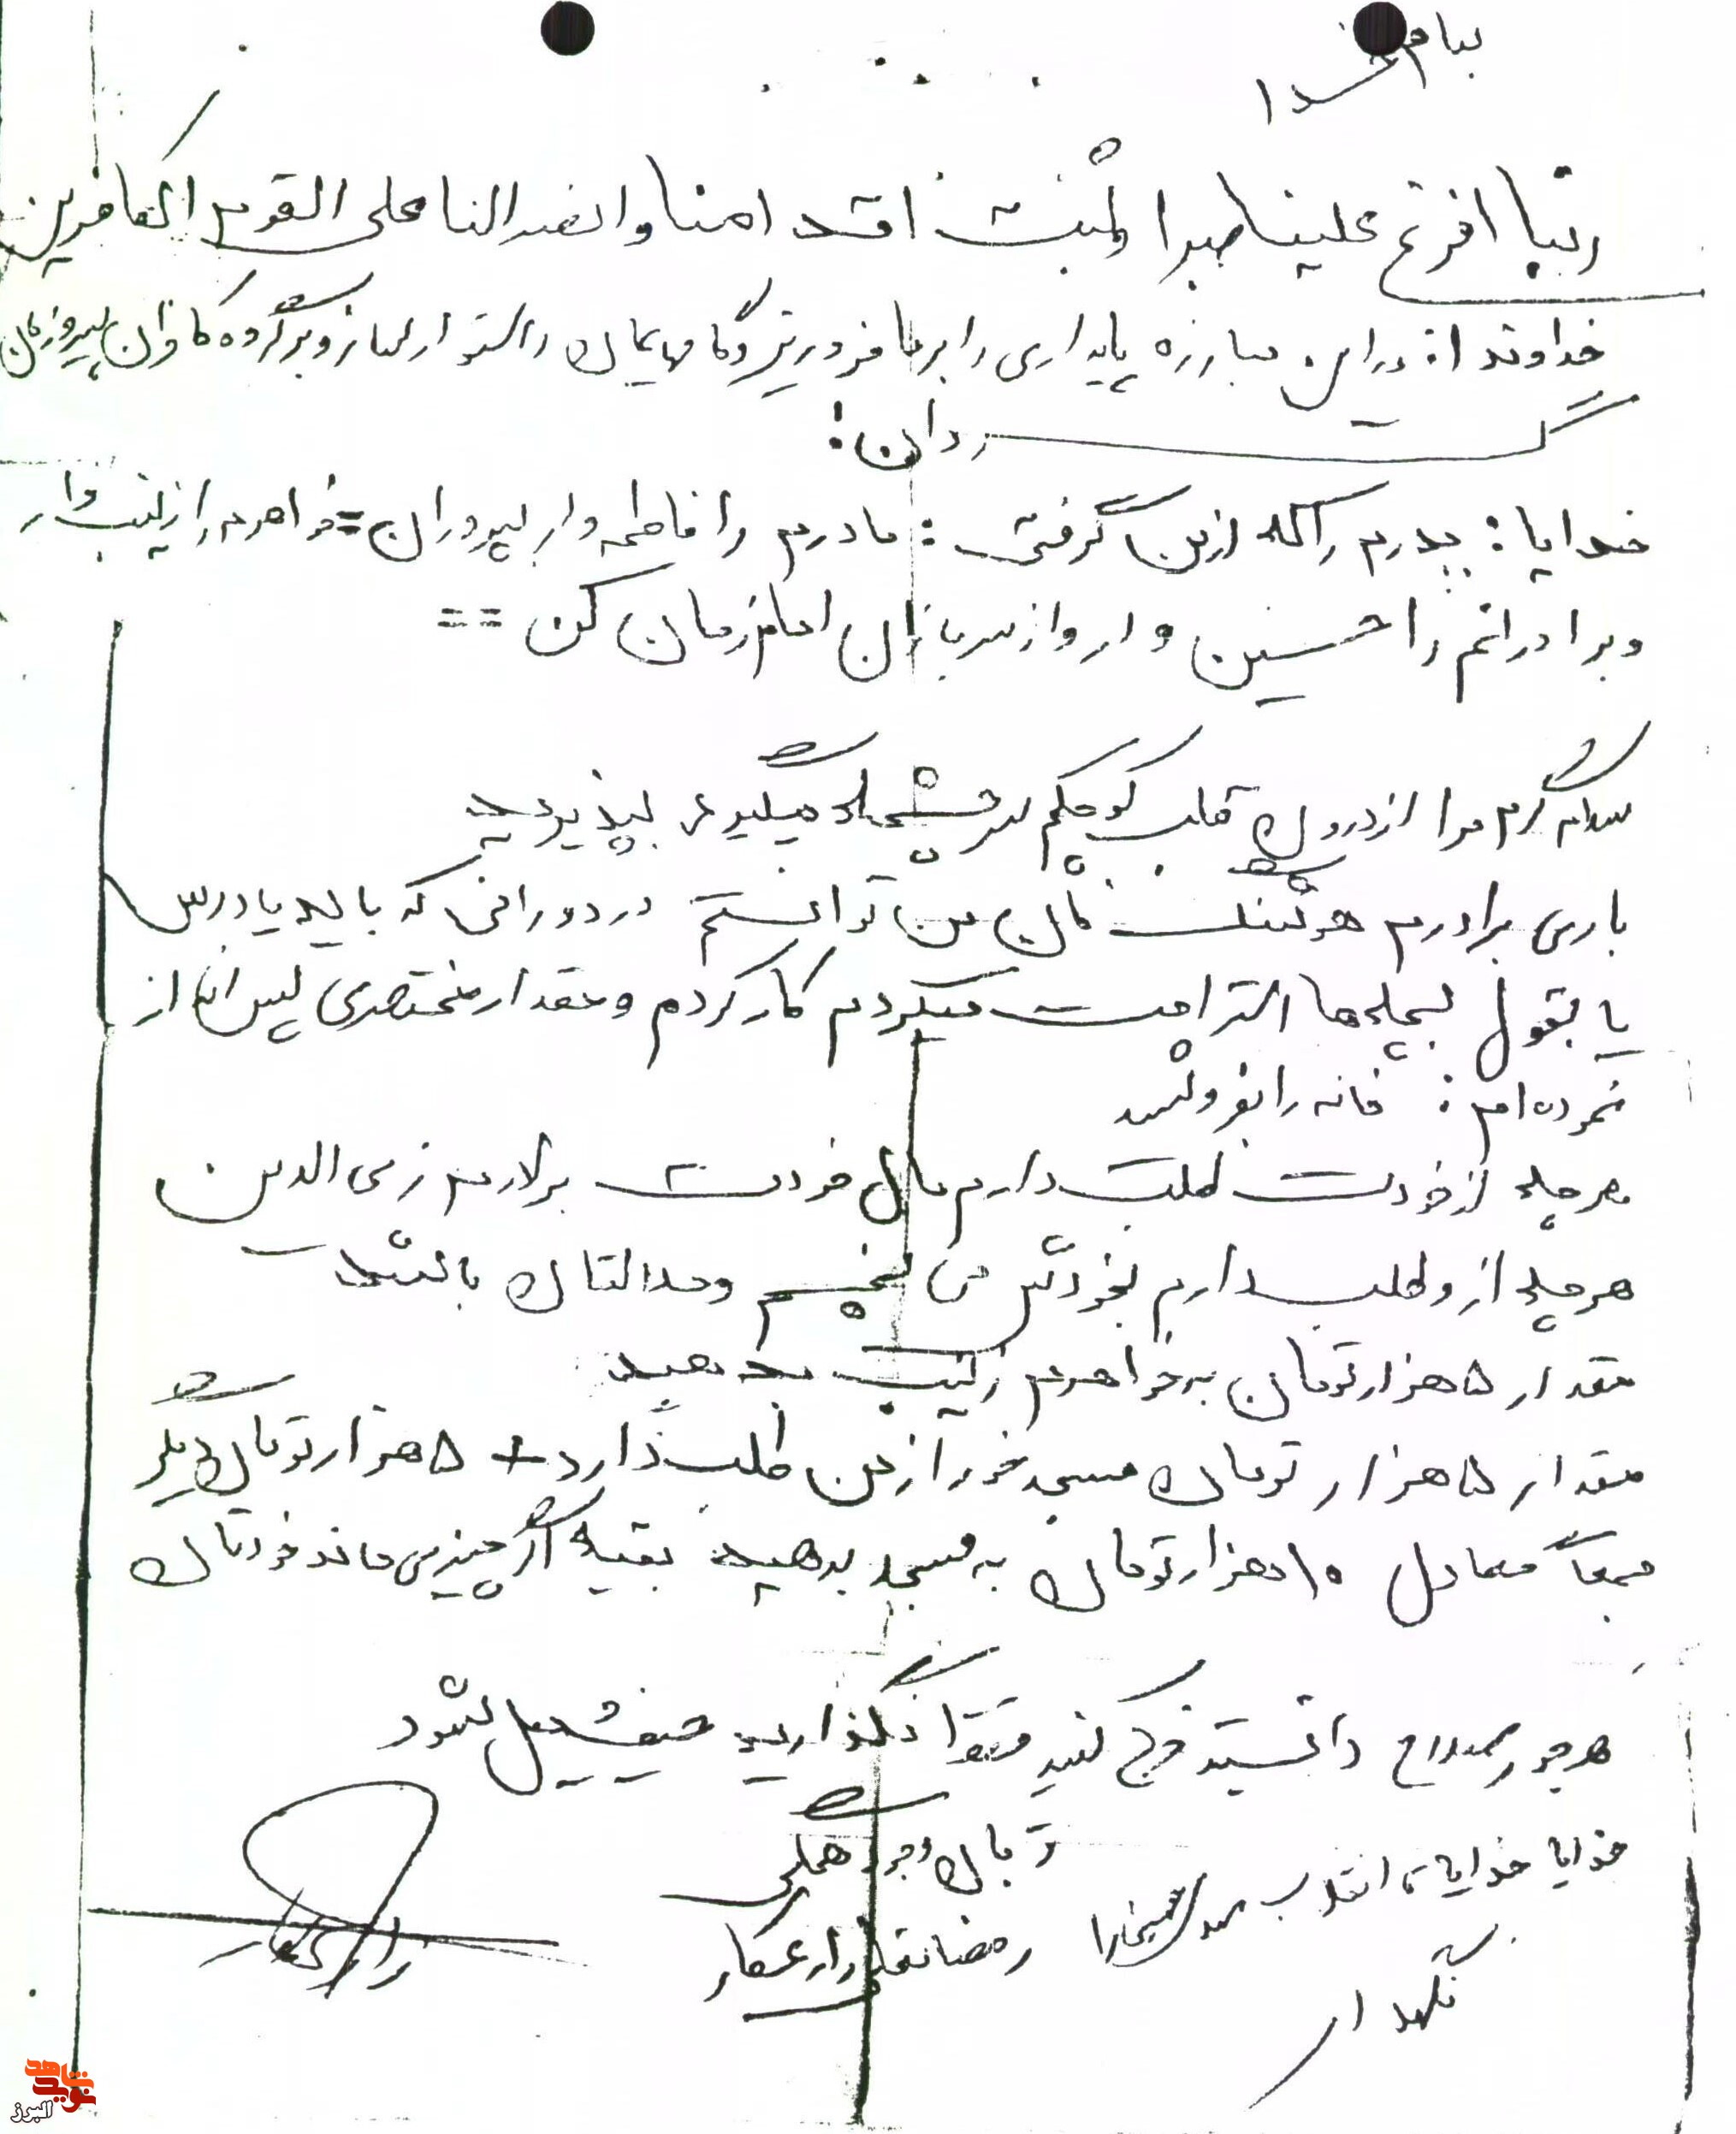 بنام خدا
ربنا افرغ علینا صبرا و ثبت اقد امنا وانصرالنا علی القوم الکافرین
خداوندا: در این مبارزه پایداری را بر ما فرو ریز و گامهایمان را استوار ساز و بر گروه کافران پیروزمان
گردان:
خدایا: پدرم را که ازمن گرفتی: مادرم را فاطمه وار بپروران = خواهرم را زینب وار
وبرادرانم را حسین وار و از سربازان امام زمان کن ==
سلام گرم مرا از درون قلب کوچکم سرچشمه میگیرد بپذیرید
باری برادرم هوشنگ من توانستم در دورانی که باید یا درس
یا بقول بچه ها استراحت میکردم کار کردم ومقدار مختصری پس انداز
نموده ام: خانه را بفروشید
هرچه از خودت طلب دارم مال خودت برادرم زین الدین
هرچه از و طلب دارم بخودش می بخشم وحلالتان باشد
مقدار ۵ هزار تومان به خواهرم زینب بدهید
مقدار ۵ هزار تومان مسجد از من طلب دارد + ۵ هزار تومان دیگر
جمعاً معادل ۱۰ هزار تومان به مسجد بدهید بقیه اگر چیزی ماند خودتان
هرجور صلاح دانستید خرج کنید فقط نگذارید حیف و میل شود
قربان وجود همگی
خدایا خدایا تا انقلاب مهدی خمینی را
نگهدار
رمضانعلی زارعکار
زارعکار
نوید شاهد
البرز